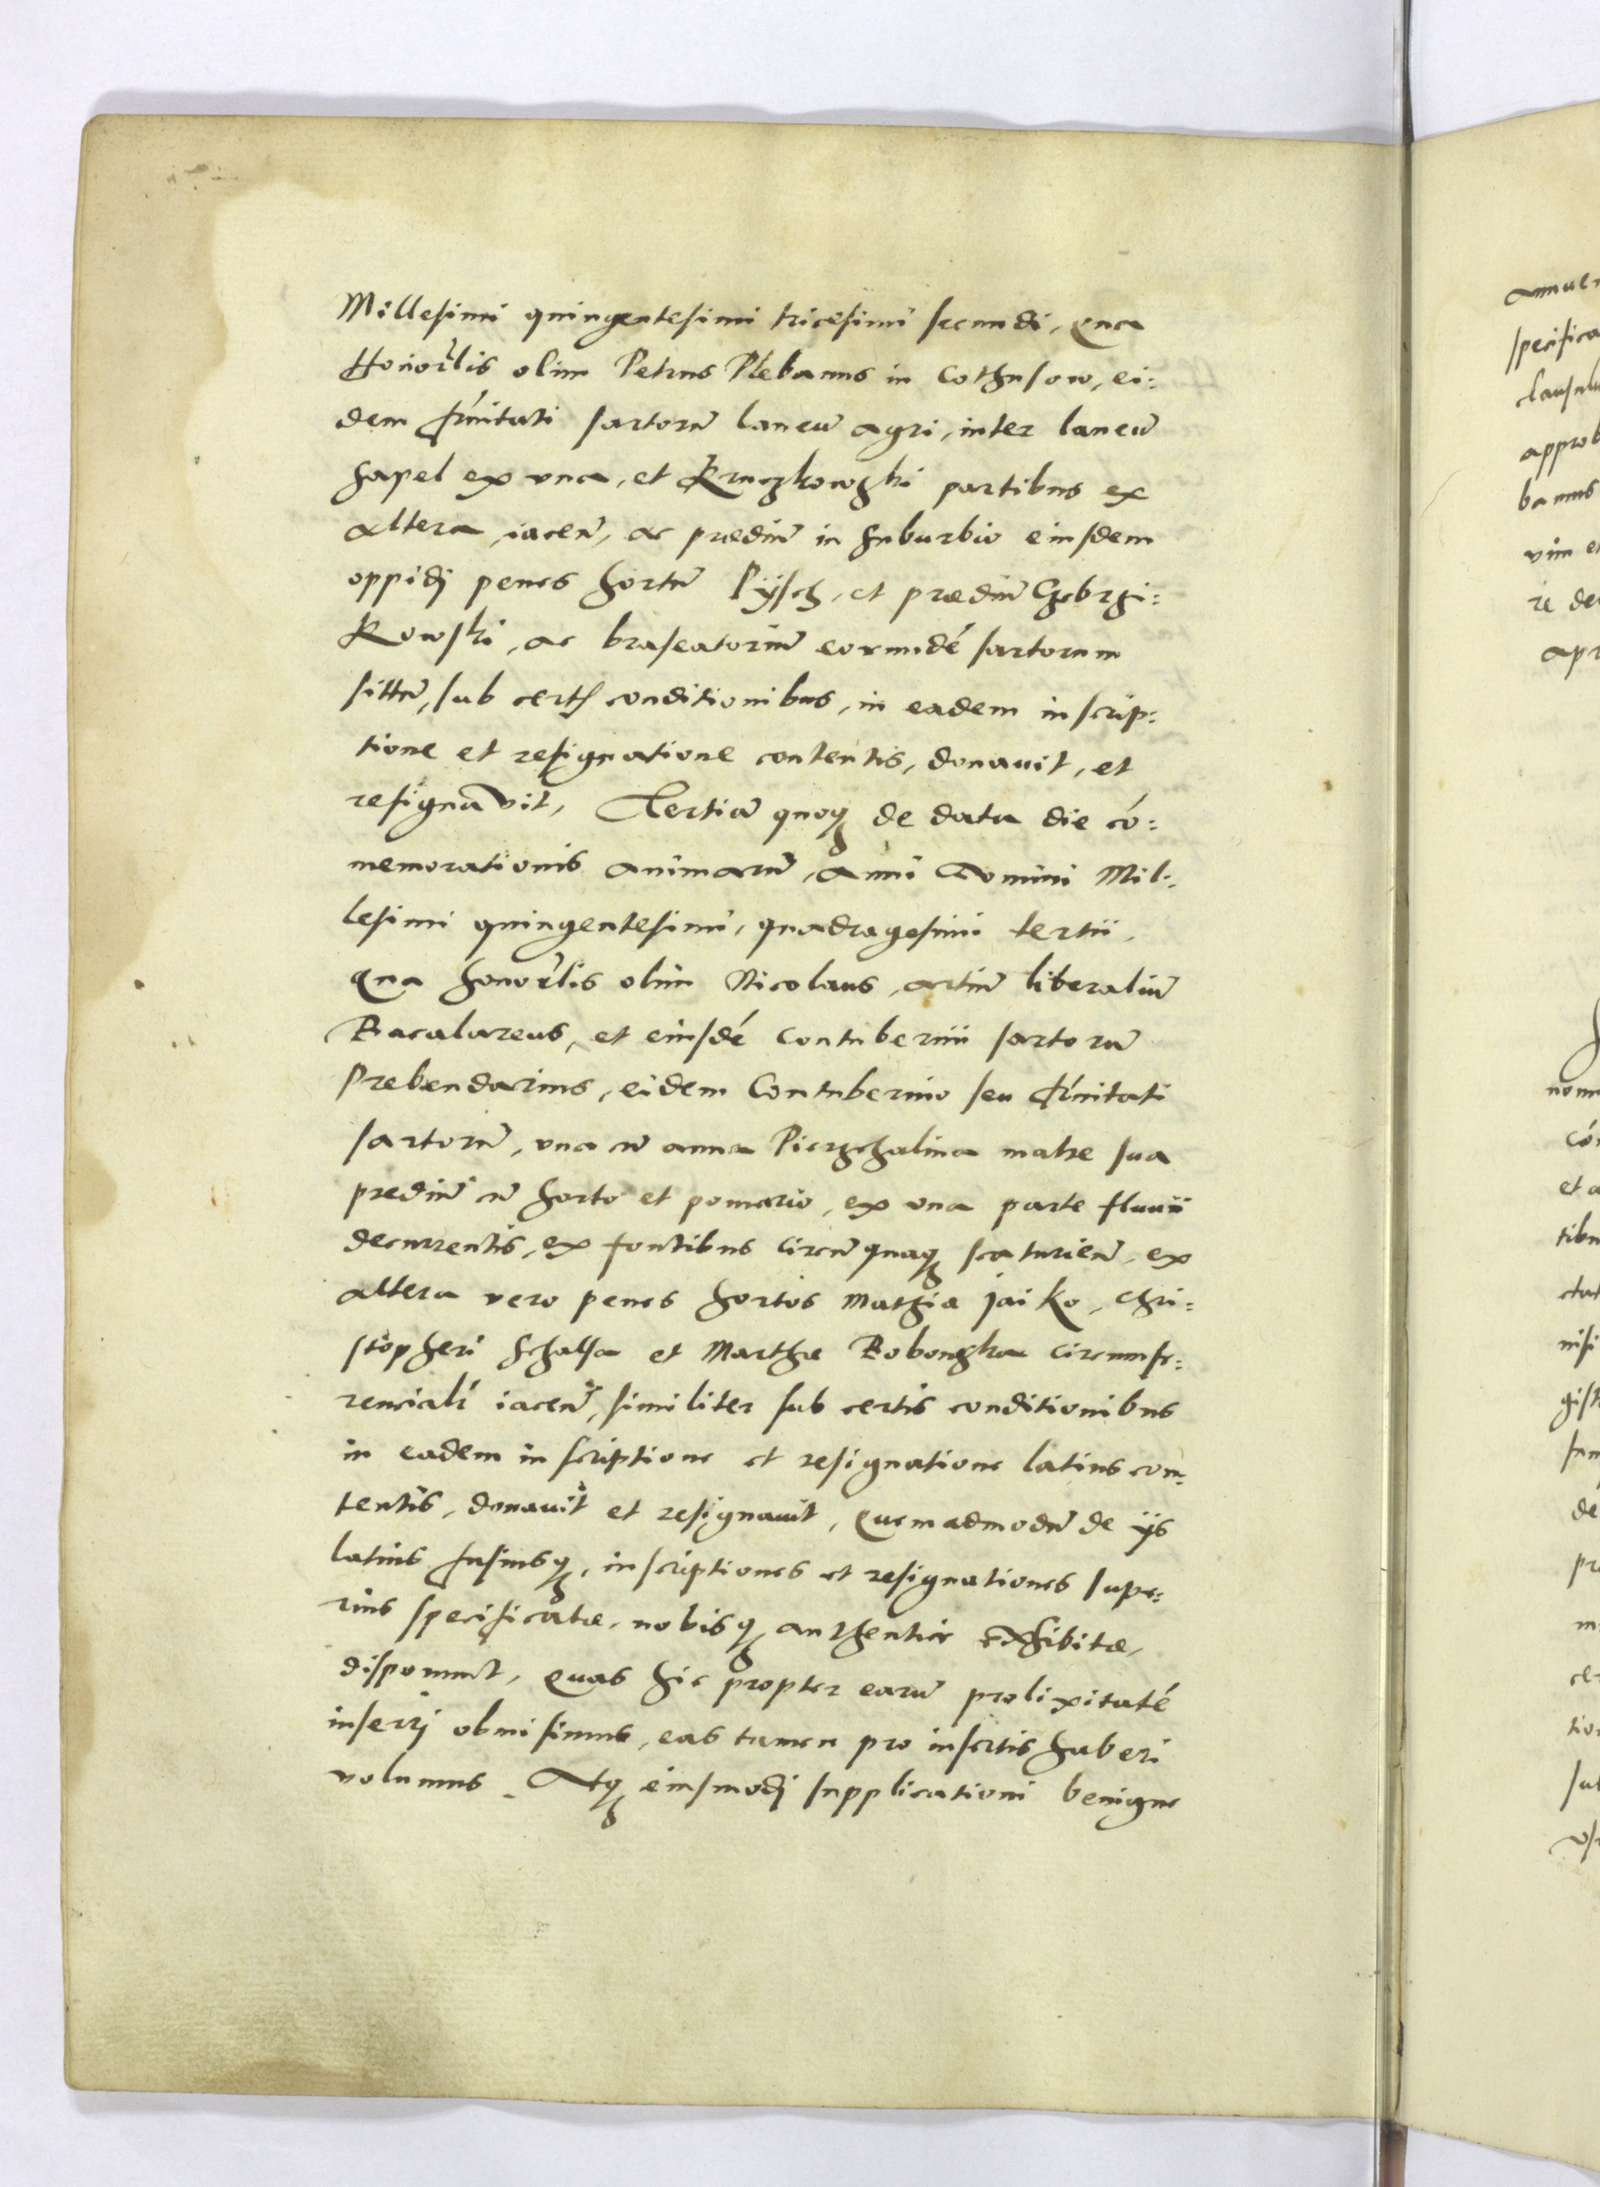 Millesimi quingentesimi tricesimi secundi, qua
Honorłis olim Petrus Plebanus in Cothusow, ei:
dem frnitati sartorū laneū agri, inter laneū
hapel ex vna, et Kruczkowski partibus ex
altera, iaceñ, ac prædiū in suburbio eiusdem
oppidj penes hortū Pÿsch, et prædiū Gebrgi:
Kowski, ac braseatoriū eorundé sartorum
sittū, sub certis conditionibus, in eadem inscrip:
tione et resignatione contentis, donauit, et
resignavit, Tertiā quoq de data die có:
memorationis animarū, anni domini Mil:
lesimi quingentesimi, quadragesimi tertii,
qua honorłis olim Nicolaus, artiū liberaliū
Bacalareus, et eiusdé contubernii sartorū
Prebendarius, eidem Contubernio seu frnitati
sartorū, vna cū anna Pierzchalina matre sua
prediū cū horto et pomario, ex vna parte fluuii
decurrentis, ex fontibus circūquaq scaturieñ, ex
altera vero penes hortos Mathiæ Jaiko, Chri:
stopheri Schalsa et Marthæ Bobongka circumfe:
renciali iaceñ, similiter sub certis conditionibus
in eadem inscriptione et resignatione latius con:
tentis, donauit et resignauit, quemadmodū de ijs
latius fusiusq, inscriptiones et resignationes supe:
rius specificatæ, nobisq authentice exhibitæ,
disponunt, quas hic propter earū prolixitaté
inserrj obmisimus, eas tamen pro insertis haberi
volumus. Atq eiusmodj supplicationi benigne